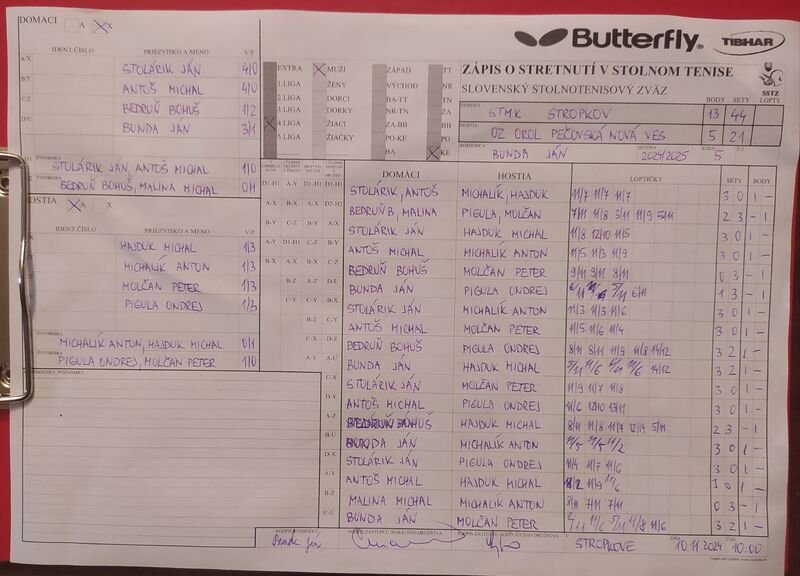 DOMÁCI A X
Butterfly TIBHAR
IDENT.ČÍSLO PRIEZVISKO A MENO V/P
A/X STOLÁRIK JÁN 4/0
B/Y ANTOŠ MICHAL 4/0
C/Z BEDRUŇ BOHUŠ 1/2
D/U BUNDA JÁN 3/1
ŠTVORHRA
STOLÁRIK JÁN, ANTOŠ MICHAL 1/0
BEDRUŇ BOHUŠ, MALINA MICHAL 0/1
HOSTIA A X
IDENT.ČÍSLO PRIEZVISKO A MENO V/P
HAJDUK MICHAL 1/3
MICHALÍK ANTON 1/3
MOLČAN PETER 1/3
PIGULA ONDREJ 1/3
ŠTVORHRA
MICHALÍK ANTON, HAJDUK MICHAL 0/1
PIGULA ONDREJ, MOLČAN PETER 1/0
POZNÁMKY
EXTRA MUŽI ZÁPAD TT
1.LIGA ŽENY VÝCHOD NR
2.LIGA DORCI BA-TT TN
3.LIGA DORKY NR-TN ZA
4.LIGA ŽIACI ZA-BB BB
5.LIGA ŽIAČKY PO-KE PO
BA KE
ZÁPIS O STRETNUTÍ V STOLNOM TENISE
SLOVENSKÝ STOLNOTENISOVÝ ZVÄZ
SSTZ
BODY SETY LOPTY
DOMÁCI STMK STROPKOV 13 44
HOSTIA OZ OROL PEČOVSKÁ NOVÁ VES 5 21
ROZHODCA BUNDA JÁN SEZÓNA 2024/2025 KOLO 5 Č.Z.
DOMÁCI HOSTIA LOPTIČKY SETY BODY
STOLÁRIK, ANTOŠ MICHALÍK, HAJDUK 11/7 11/7 11/7 3 0 1 -
BEDRUŇ B, MALINA PIGULA, MOLČAN 7/11 11/8 5/11 11/9 5/11 2 3 - 1
STOLÁRIK JÁN HAJDUK MICHAL 11/8 12/10 11/5 3 0 1 -
ANTOŠ MICHAL MICHALÍK ANTON 11/5 11/3 11/9 3 0 1 -
BEDRUŇ BOHUŠ MOLČAN PETER 9/11 9/11 8/11 0 3 - 1
BUNDA JÁN PIGULA ONDREJ 6/11 1 3 - 1
STOLÁRIK JÁN MICHALÍK ANTON 11/3 11/3 11/6 3 0 1 -
ANTOŠ MICHAL MOLČAN PETER 11/5 11/6 11/4 3 0 1 -
BEDRUŇ BOHUŠ PIGULA ONDREJ 8/11 8/11 11/9 11/8 14/12 3 2 1 -
BUNDA JÁN HAJDUK MICHAL 14/12 3 2 1 -
STOLÁRIK JÁN MOLČAN PETER 11/9 11/7 11/8 3 0 1 -
ANTOŠ MICHAL PIGULA ONDREJ 11/6 12/10 13/11 3 0 1 -
BEDRUŇ BOHUŠ HAJDUK MICHAL 8/11 11/8 11/7 12/14 5/11 2 3 - 1
BUNDA JÁN MICHALÍK ANTON 11/5 11/5 11/2 3 0 1 -
STOLÁRIK JÁN PIGULA ONDREJ 11/4 11/7 11/6 3 0 1 -
ANTOŠ MICHAL HAJDUK MICHAL 11/9 11/6 0 1 -
MALINA MICHAL MICHALÍK ANTON 5/11 7/11 7/11 0 3 - 1
BUNDA JÁN MOLČAN PETER 11/6 11/6 3 2 1 -
PODPIS ROZHODCU PODPIS ZÁSTUPCU DOMÁCEHO DRUŽSTVA PODPIS ZÁSTUPCU HOSŤUJÚCEHO DRUŽSTVA V STROPKOVE DŇA 10.11.2024 ČAS 10:00
Bunda Ján